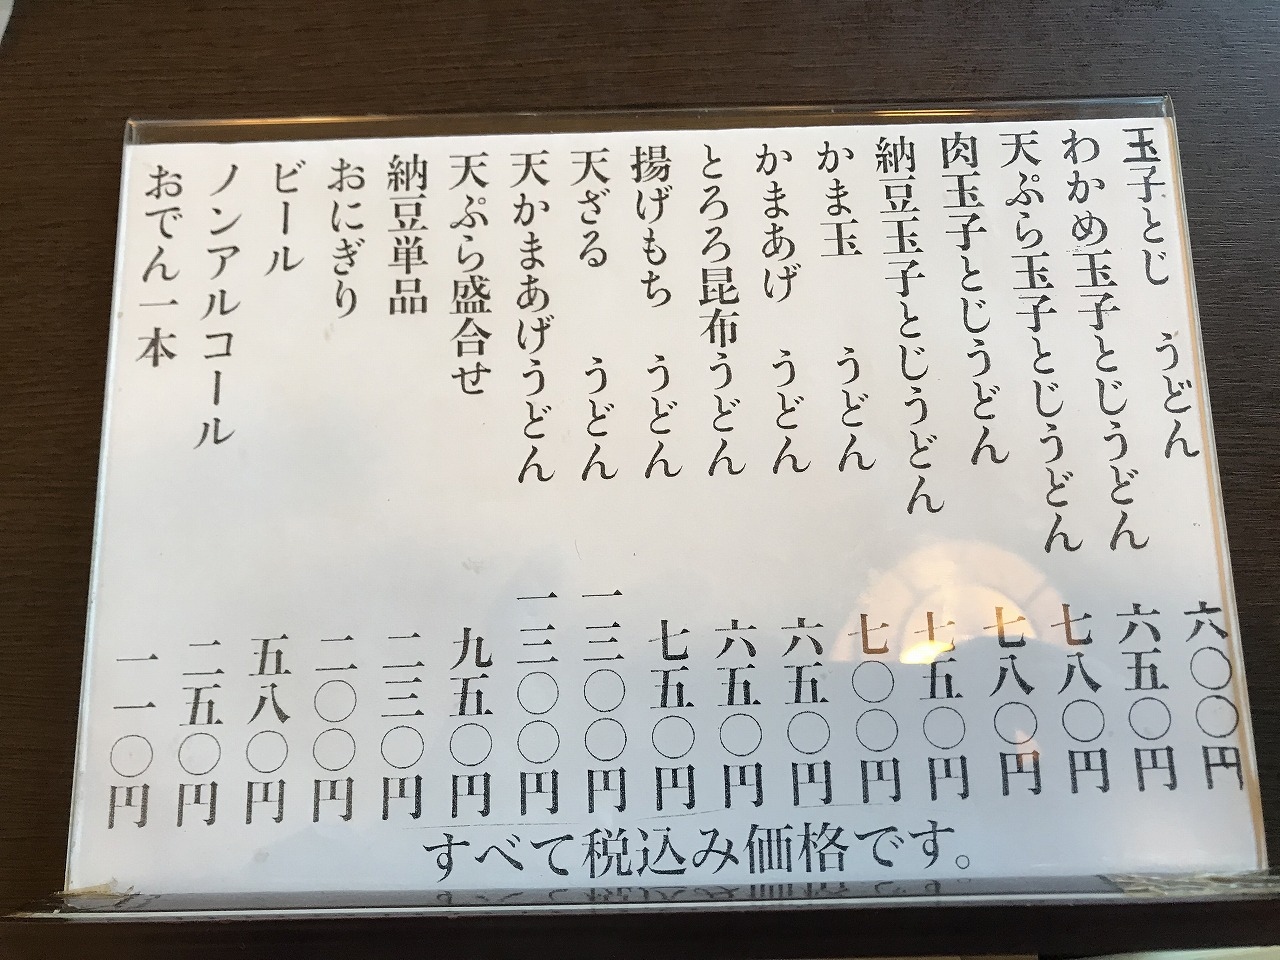 玉子とじ うどん 六〇〇円
わかめ玉子とじうどん 六五〇円
天ぷら玉子とじうどん 七八〇円
肉玉子とじうどん 七八〇円
納豆玉子とじうどん 七五〇円
かま玉 うどん 七〇〇円
かまあげ うどん 六五〇円
とろろ昆布うどん 六五〇円
揚げもち うどん 七五〇円
天ざる うどん 一三〇〇円
天かまあげうどん 一三〇〇円
天ぷら盛合せ 九五〇円
納豆単品 二三〇円
おにぎり 二〇〇円
ビール 五八〇円
ノンアルコール 二五〇円
おでん一本 一一〇円
すべて税込み価格です。